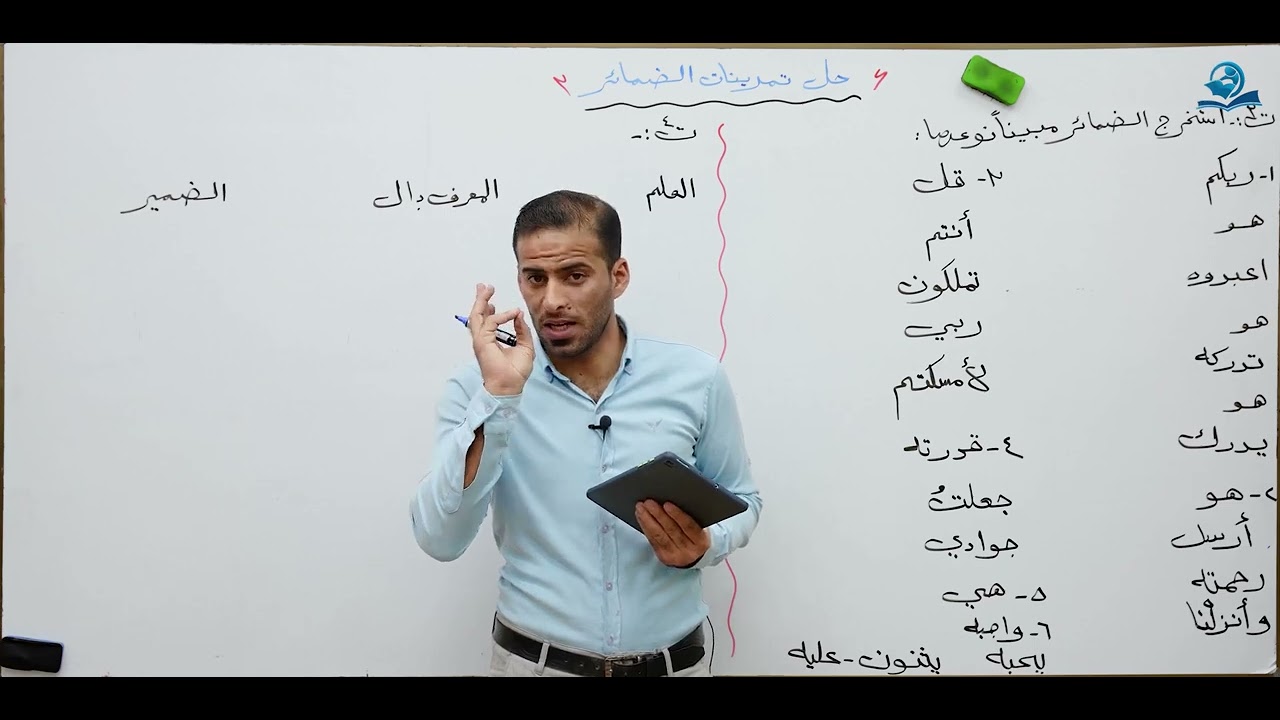 حل تمرينات الضمائر ٢
ت٣:- استخرج الضمائر مبيناً نوعها:
١- ربكم
هو
اعبدوه
هو
تدركه
هو
يدرك
٢- هو
أرسل
رحمته
وأنزلنا
٣- قل
أنتم
تملكون
ربي
لأمسكتم
٤- قدرته
جعلتُ
جوادي
٥- هي
٦- واجبه
يحبه يثنون - عليه
ت٤:-
العلم المعرف بـ ال الضمير